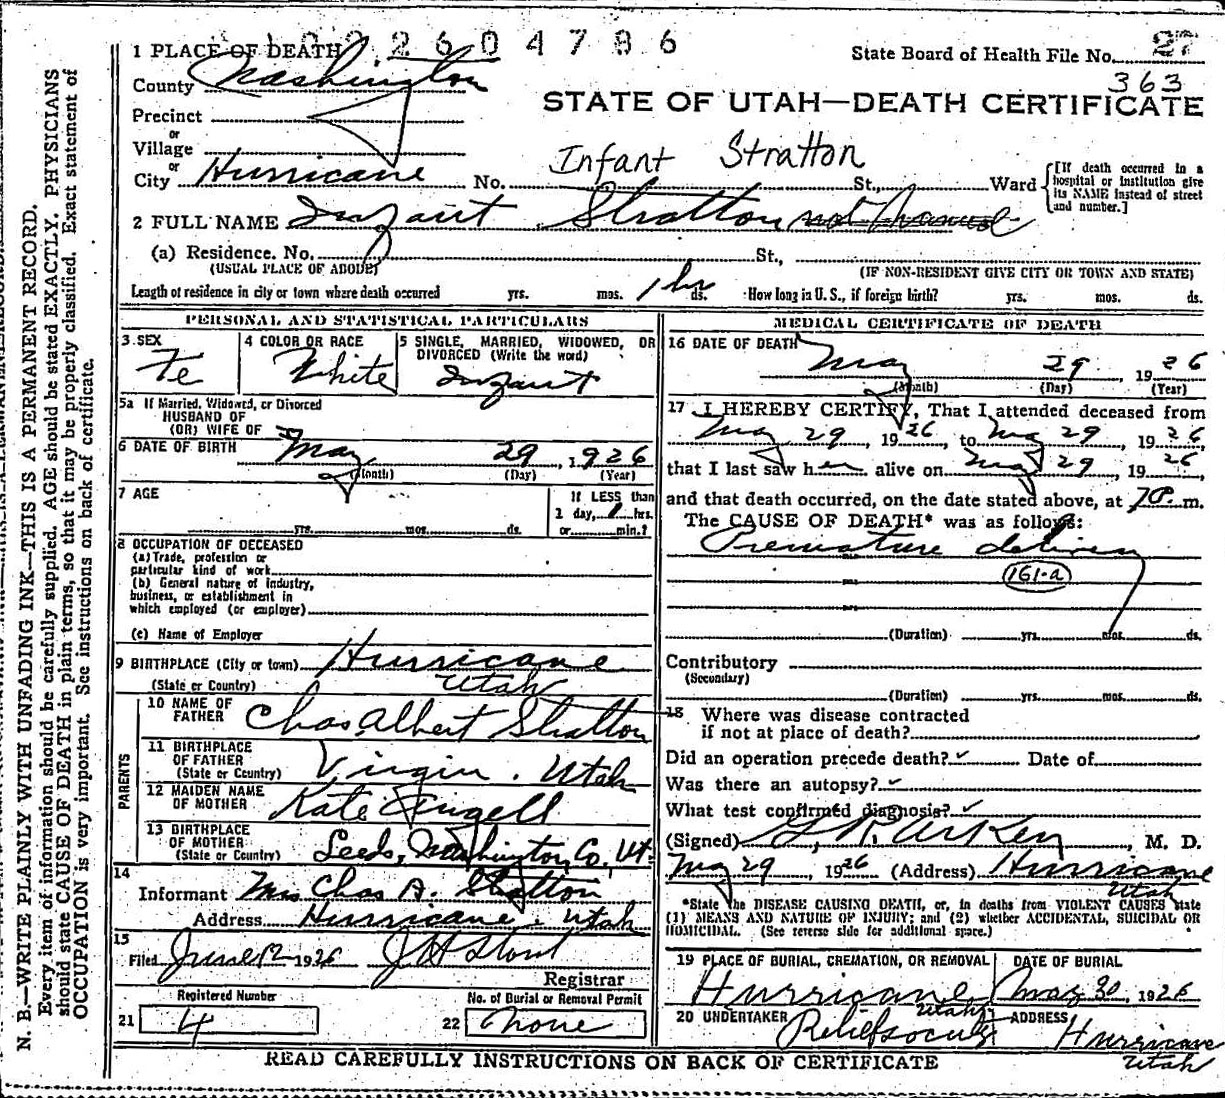 2604786
1 PLACE OF DEATH
State Board of Health File No. 27
363
County Washington
STATE OF UTAH—DEATH CERTIFICATE
Precinct
or
Village
or
City Hurricane No. St., Ward
Infant Stratton
[If death occurred in a hospital or institution give its NAME instead of street and number.]
2 FULL NAME Infant Stratton not named
(a) Residence. No. St.,
(USUAL PLACE OF ABODE) (IF NON-RESIDENT GIVE CITY OR TOWN AND STATE)
Length of residence in city or town where death occurred yrs. mos. 1 hr ds. How long in U. S., if foreign birth? yrs. mos. ds.
PERSONAL AND STATISTICAL PARTICULARS
3 SEX
Fe
4 COLOR OR RACE
White
5 SINGLE, MARRIED, WIDOWED, OR
DIVORCED (Write the word)
Infant
5a If Married, Widowed, or Divorced
HUSBAND OF
(OR) WIFE OF
6 DATE OF BIRTH May 29, 1926
(Month) (Day) (Year)
7 AGE
yrs. mos. ds.
If LESS than
1 day, 1 hrs.
or min.?
8 OCCUPATION OF DECEASED
(a) Trade, profession or
particular kind of work
(b) General nature of industry,
business, or establishment in
which employed (or employer)
(c) Name of Employer
9 BIRTHPLACE (City or town) Hurricane
(State or Country) Utah
PARENTS
10 NAME OF
FATHER Chas. Albert Stratton
11 BIRTHPLACE
OF FATHER
(State or Country) Virgin, Utah
12 MAIDEN NAME
OF MOTHER Kate Angell
13 BIRTHPLACE
OF MOTHER
(State or Country) Leeds, Washington Co, Ut.
14
Informant Mrs Chas A. Stratton
Address Hurricane, Utah
15
Filed June 12 1926
Registrar
Registered Number
21 4
No. of Burial or Removal Permit
22 None
MEDICAL CERTIFICATE OF DEATH
16 DATE OF DEATH
May 29, 1926
(Month) (Day) (Year)
17 I HEREBY CERTIFY, That I attended deceased from
May 29, 1926, to May 29, 1926
that I last saw her alive on May 29, 1926,
and that death occurred, on the date stated above, at 7 P. m.
The CAUSE OF DEATH* was as follows:
Premature delivery
161-a
(Duration) yrs. mos. ds.
Contributory
(Secondary)
(Duration) yrs. mos. ds.
18 Where was disease contracted
if not at place of death?
Did an operation precede death? ✓ Date of
Was there an autopsy? ✓
What test confirmed diagnosis? ✓
(Signed) , M. D.
May 29, 1926 (Address) Hurricane
Utah
*State the DISEASE CAUSING DEATH, or, in deaths from VIOLENT CAUSES state
(1) MEANS AND NATURE OF INJURY; and (2) whether ACCIDENTAL, SUICIDAL OR
HOMICIDAL. (See reverse side for additional space.)
19 PLACE OF BURIAL, CREMATION, OR REMOVAL
Hurricane, Utah
DATE OF BURIAL
May 30, 1926
20 UNDERTAKER
Relief society
ADDRESS
Hurricane
Utah
READ CAREFULLY INSTRUCTIONS ON BACK OF CERTIFICATE
N. B.—WRITE PLAINLY WITH UNFADING INK—THIS IS A PERMANENT RECORD.
Every item of information should be carefully supplied. AGE should be stated EXACTLY. PHYSICIANS
should state CAUSE OF DEATH in plain terms, so that it may be properly classified. Exact statement of
OCCUPATION is very important. See instructions on back of certificate.